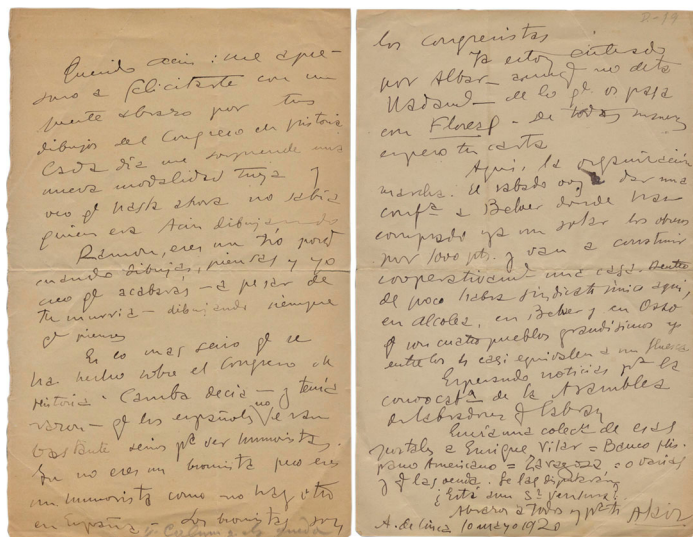 Querido Acin: me apre-
suro a felicitarte con un
fuerte abrazo por tus
dibujos del Congreso de historia
Cada día me sorprende una
nueva modalidad tuya y
veo qe hasta ahora no sabía
quien era Acin dibujando
Ramon, eres un tío porqe
cuando dibujas, piensas y yo
creo qe acabaras - a pesar de
tu murria - dibujando siempre
qe pienses
Es lo mas serio qe se
ha hecho sobre el Congreso de
Historia. Camba decía - y tenía
razon - qe los españoles no eran
bastante serios pa ser humoristas.
Tu no eres un bromista pero eres
un humorista como no hay otro
en España. Los bromistas son
los congresistas
Ya estoy enterado
por Albar - amigo no de ta
- de lo qe os pasa
con Flores - De todas maneras
espero tu carta
Aqui, la organización
marcha. El sabado voy a dar una
confa a Belver donde han
comprado ya un solar los obreros
por 1000 pts. y van a construir
cooperativamt una casa. Dentro
de poco habra sindicato único aquí,
en Alcolea, en Belver y en Osso
qe son cuatro pueblos grandísimos y
entre los 4 casi equivalen a un Huesca
Esperando noticias pa la
convocata de la Asamblea
de labradores qe labran
Envia una colecc de esas
postales a Enrique Vilar = Banco His-
pano Americano = Zaragoza, o varias
y qe las venda. Se las
¿Está aun Sr Ventura?
Abrazos a todos y pa ti Alaiz
A. de Cinca 10 mayo 1920